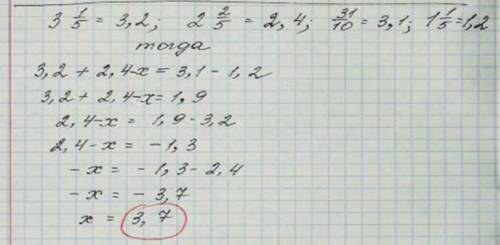 3 1/5 = 3,2; 2 2/5 = 2,4; 31/10 = 3,1; 1 1/5 = 1,2
тогда
3,2 + 2,4-x = 3,1 - 1,2
3,2 + 2,4-x = 1,9
2,4-x = 1,9-3,2
2,4-x = -1,3
-x = -1,3-2,4
-x = -3,7
x = 3,7